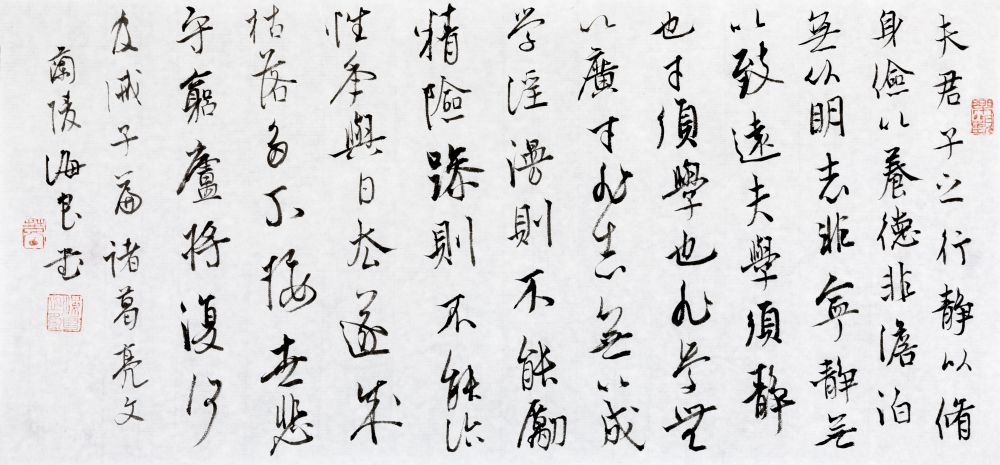 夫君子之行静以脩
身儉以養德非澹泊
無以明志非寧静無
以致遠夫學須静
也才須學也非学無
以廣才非志無以成
学淫漫則不能勵
精險躁則不能治
性年與日去遂成
枯落多不接世悲
守窮廬将復何
及诫子篇诸葛亮文
蘭陵海书